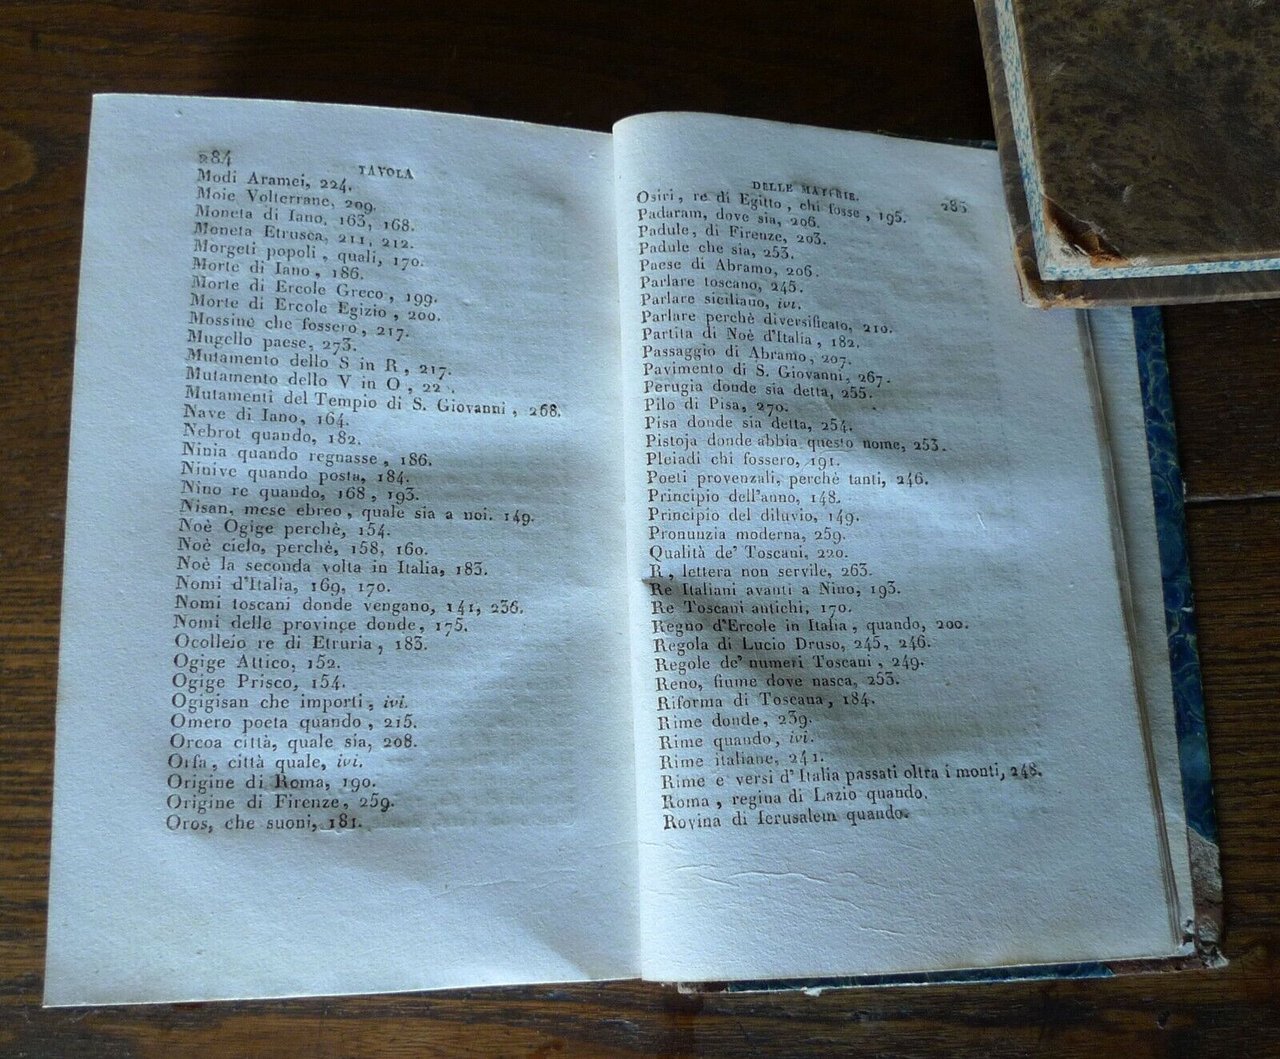 284
TAVOLA
Modi Aramei, 224.
Moie Volterrane, 209.
Moneta di Iano, 163, 168.
Moneta Etrusca, 211, 212.
Morgeti popoli, quali, 170.
Morte di Iano, 186.
Morte di Ercole Greco, 199.
Morte di Ercole Egizio, 200.
Mossine che fossero, 217.
Mugello paese, 273.
Mutamento dello S in R, 217.
Mutamento dello V in O, 22 .
Mutamenti del Tempio di S. Giovanni, 268.
Nave di Iano, 164.
Nebrot quando, 182.
Ninia quando regnasse, 186.
Ninive quando posta, 184.
Nino re quando, 168, 193.
Nisan, mese ebreo, quale sia a noi. 149.
Noè Ogige perchè, 154.
Noè cielo, perchè, 158, 160.
Noè la seconda volta in Italia, 183.
Nomi d'Italia, 169, 170.
Nomi toscani donde vengano, 141, 236.
Nomi delle province donde, 175.
Ocolleio re di Etruria, 183.
Ogige Attico, 152.
Ogige Prisco, 154.
Ogigisan che importi, ivi.
Omero poeta quando, 215.
Orcoa città, quale sia, 208.
Orfa, città quale, ivi.
Origine di Roma, 190.
Origine di Firenze, 259.
Oros, che suoni, 181.
DELLE MATERIE.
285
Osiri, re di Egitto, chi fosse, 195.
Padaram, dove sia, 206.
Padule, di Firenze, 203.
Padule che sia, 253.
Paese di Abramo, 206.
Parlare toscano, 245.
Parlare siciliano, ivi.
Parlare perchè diversificato, 210.
Partita di Noè d'Italia, 182.
Passaggio di Abramo, 207.
Pavimento di S. Giovanni, 267.
Perugia donde sia detta, 255.
Pilo di Pisa, 270.
Pisa donde sia detta, 254.
Pistoja donde abbia questo nome, 253.
Pleiadi chi fossero, 191.
Poeti provenzali, perchè tanti, 246.
Principio dell'anno, 148.
Principio del diluvio, 149.
Pronunzia moderna, 259.
Qualità de' Toscani, 220.
R, lettera non servile, 263.
Re Italiani avanti a Nino, 193.
Re Toscani antichi, 170.
Regno d'Ercole in Italia, quando, 200.
Regola di Lucio Druso, 245, 246.
Regole de' numeri Toscani, 249.
Reno, fiume dove nasca, 253.
Riforma di Toscana, 184.
Rime donde, 239.
Rime quando, ivi.
Rime italiane, 241.
Rime e versi d'Italia passati oltra i monti, 248.
Roma, regina di Lazio quando.
Rovina di Ierusalem quando.